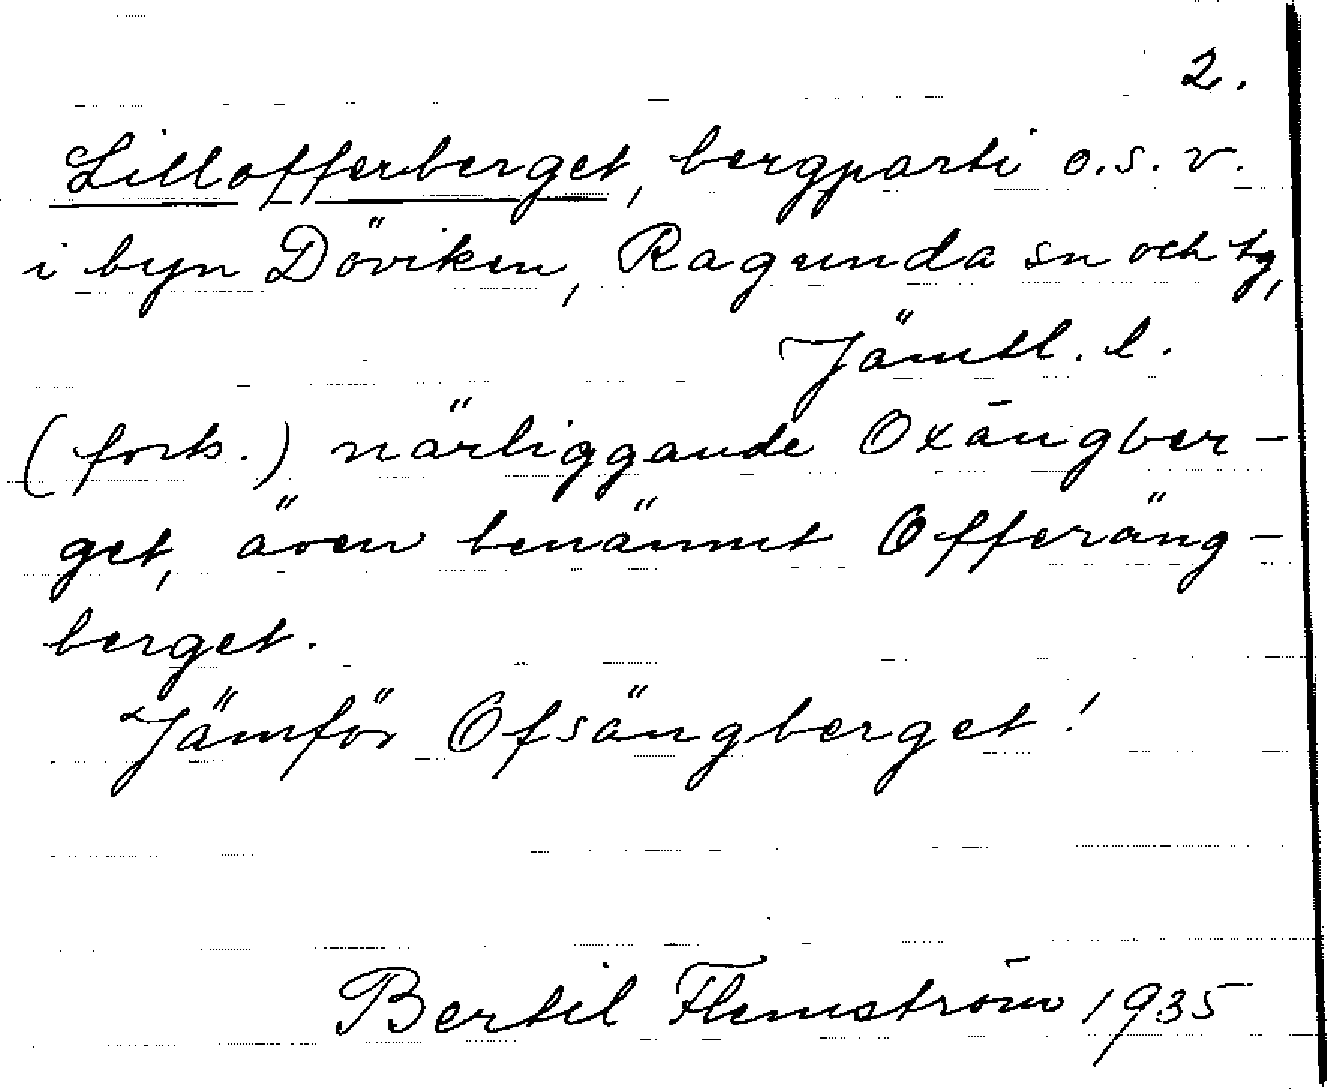 2.
Lillofferberget, bergparti o.s.v.
i byn Döviken, Ragunda sn och tg,
Jämtl. l.
(forts.) närliggande Oxängber-
get, även benämnt Offeräng-
berget.
Jämför Ofsängberget!
Bertil Flemström 1935